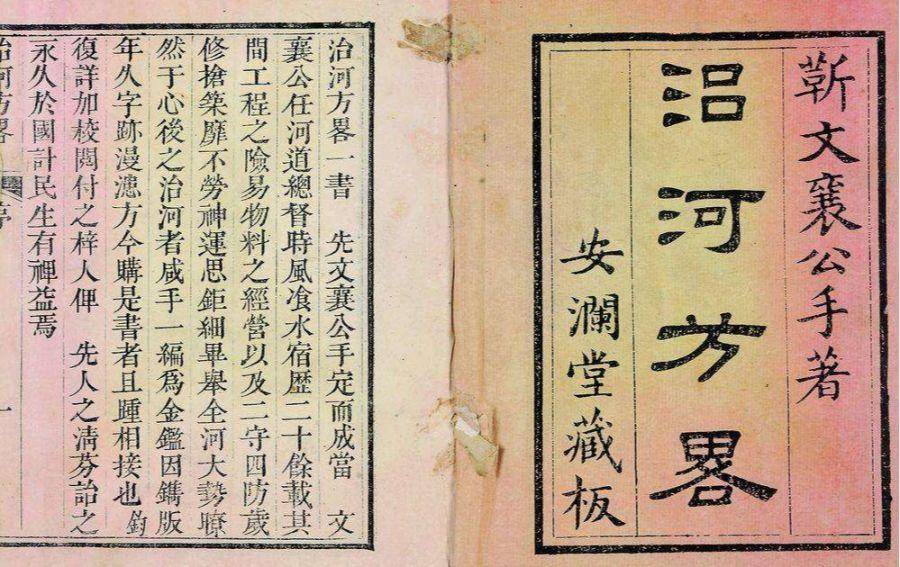 靳文襄公手著
治河方畧
安瀾堂藏板
治河方畧一書　先文襄公手定而成當　文
襄公任河道總督時風飡水宿歷二十餘載其
間工程之險易物料之經營以及二守四防歲
修搶築靡不勞神運思鉅細畢舉全河大勢瞭
然于心後之治河者咸手一編爲金鑑因鐫版
年久字跡漫漶方今購是書者且踵相接也鈞
復詳加校閱付之梓人俾　先人之淸芬詒之
永久於國計民生有裨益焉
治河方畧　序　一